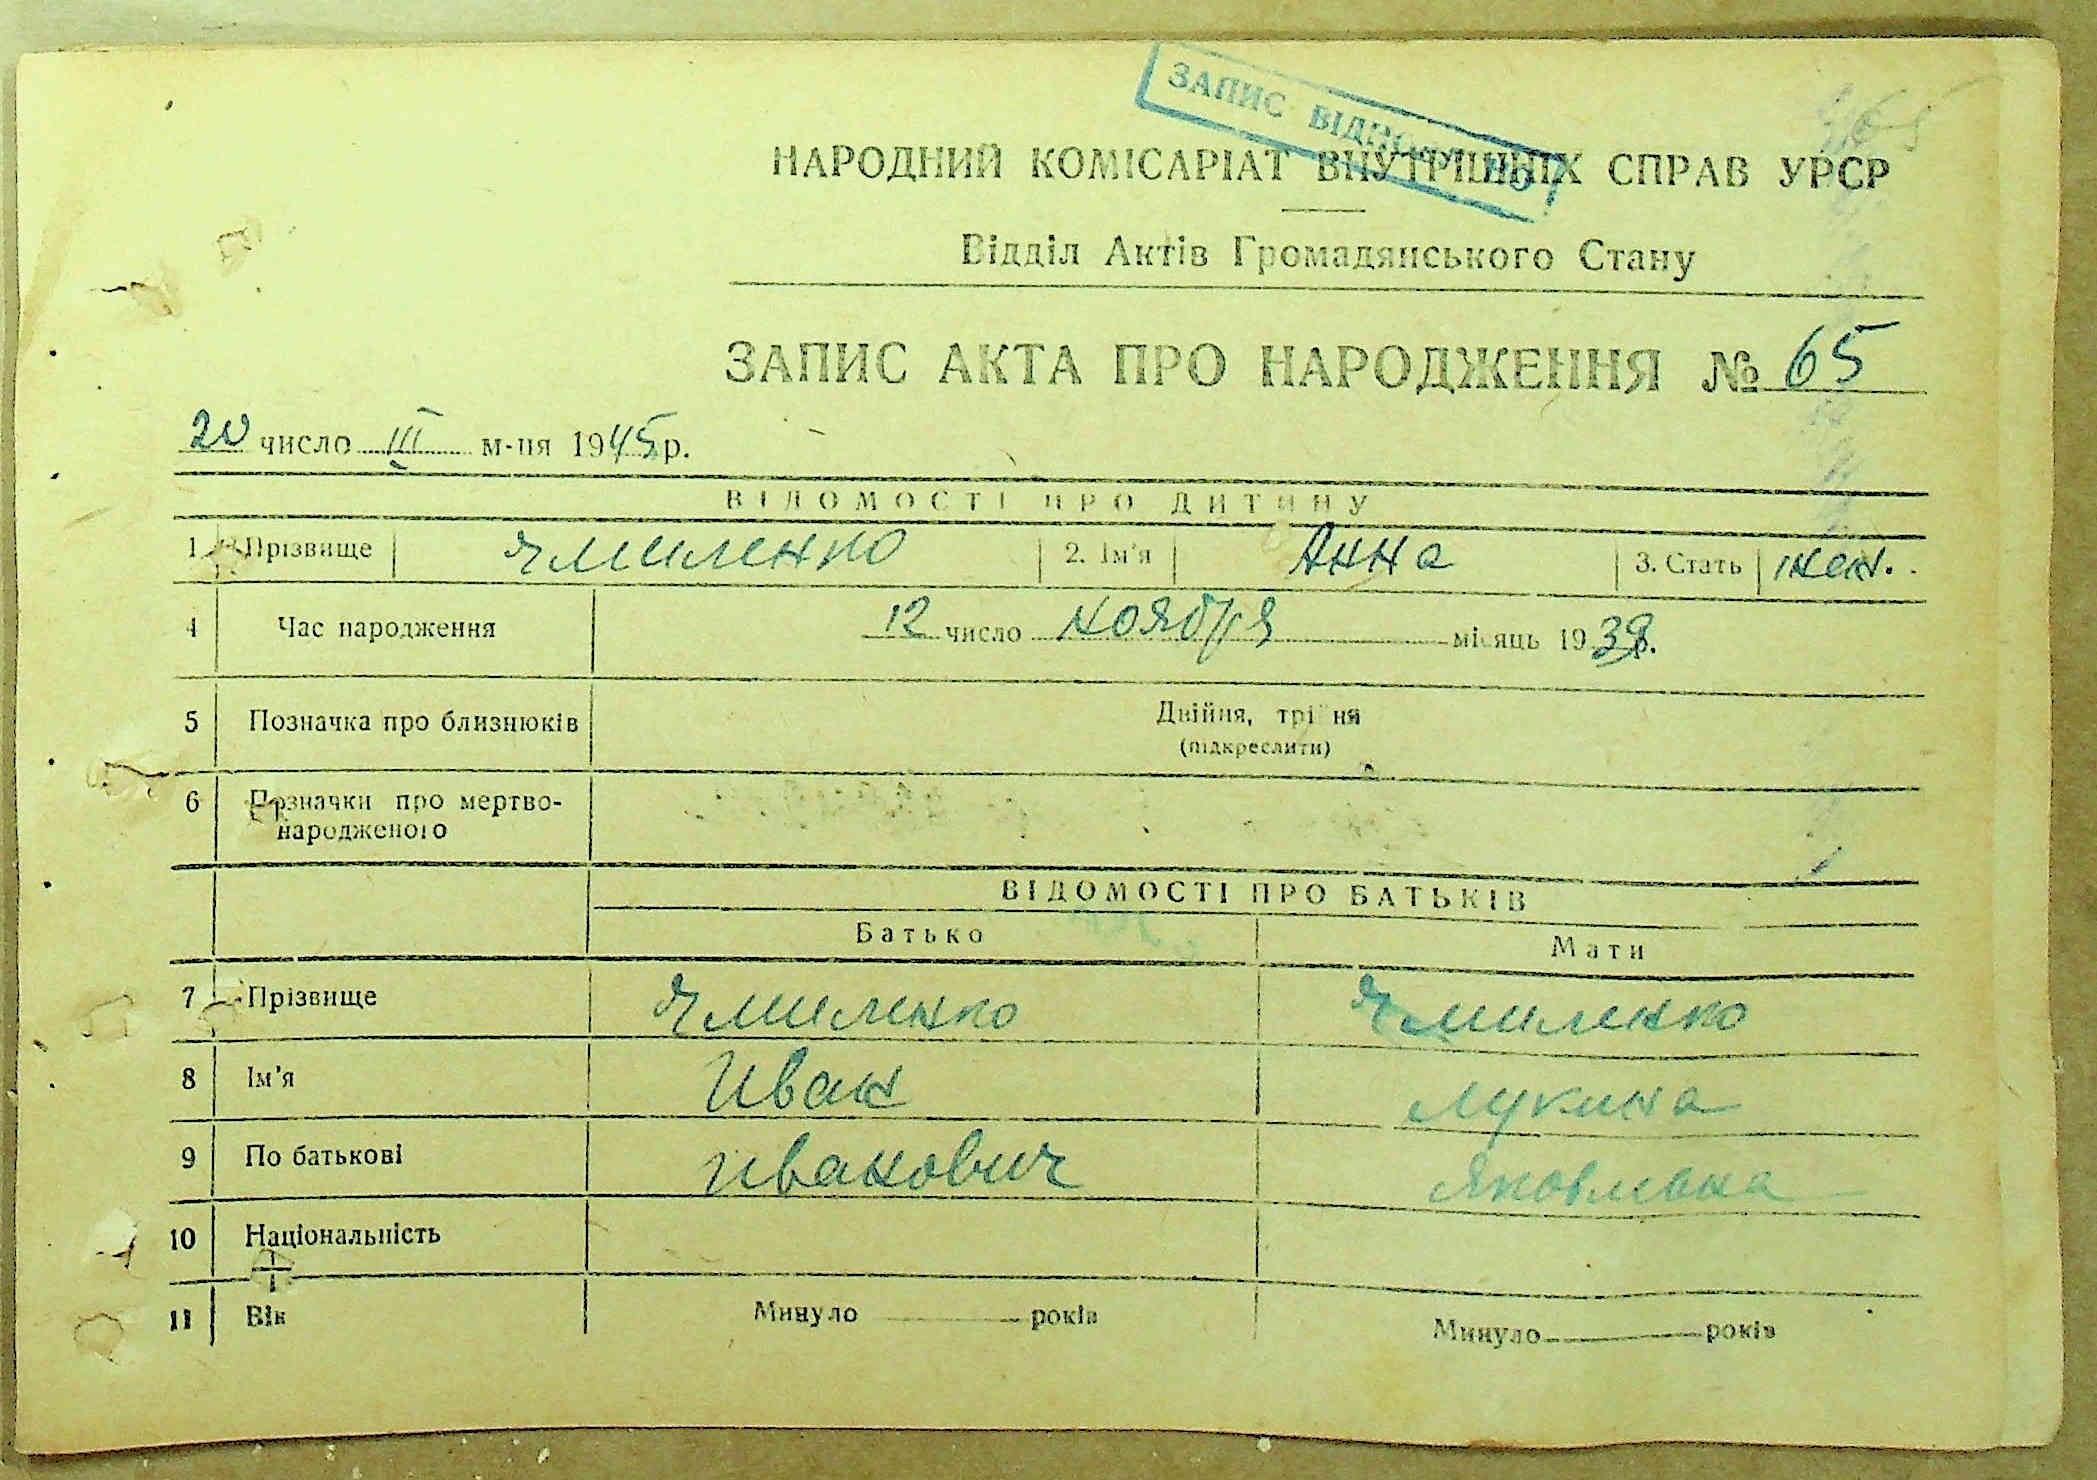 ЗАПИС ВІДНОВЛЕНО
НАРОДНИЙ КОМІСАРІАТ ВНУТРІШНІХ СПРАВ УРСР
Відділ Актів Громадянського Стану
ЗАПИС АКТА ПРО НАРОДЖЕННЯ № 65
20 число III м-ця 1945 р.
ВІДОМОСТІ ПРО ДИТИНУ
1 Прізвище Ямиленко 2. Ім'я Анна 3. Стать жен.
4 Час народження 12 число ноября місяць 1939 р.
5 Позначка про близнюків Двійня, трійня
(підкреслити)
6 Позначки про мертво-
народженого
ВІДОМОСТІ ПРО БАТЬКІВ
Батько Мати
7 Прізвище Ямиленко Ямиленко
8 Ім'я Иван Лукина
9 По батькові Иванович Яковлевна
10 Національність
11 Вік Минуло років Минуло років